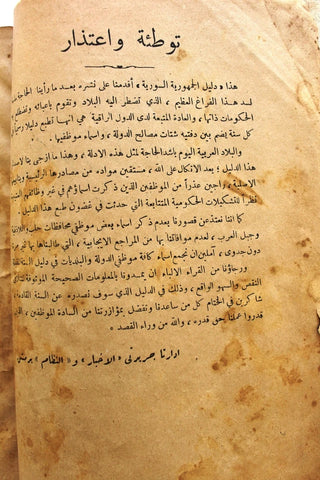 توطئة واعتذار
هذا « دليل الجمهورية السورية » أقدمنا على نشره بعد ما رأينا الحاجة
لسد هذا الفراغ العظيم ، الذي تضطر اليه البلاد وتقوم بأعبائه
الحكومات ذاتها ، والعادة المتبعة لدى الدول الراقية هي انها تطبع دليلا
كل سنة يضم بين دفتيه شتات مصالح الدولة ، واسماء موظفيها
والبلاد العربية اليوم بأشد الحاجة لمثل هذه الادلة ، وهذا ما
هذا الدليل ؛ بعد الاتكال على الله ، مستقين مواده من مصادرها الرئيسية
الاصلية ، راجين عذراً من الموظفين الذين ذكرت اسماؤهم في غير وظائفهم
نظراً للتشكيلات الحكومية المتتابعة التي حدثت في غضون طبع هذا الدليل .
كما اننا نعتذر عن قصورنا بعدم ذكر اسماء بعض موظفي محافظات حلب
وجبل العرب ، لعدم موافاتنا بها من المراجع الايجابية ، التي طالبناها بها
دون جدوى ، آملين ان نجمع اسماء كافة موظفي الدولة والبلديات في دليل السنة
ورجاؤنا من القراء الالباء ان يمدونا بالمعلومات الصحيحة الموثوقة
النقص والسهو الواقع ، وذلك في الدليل الذي سوف نصدره عن السنة
شاكرين في الختام كل من ساعدنا وتفضل بمؤازرتنا من السادة الموظفين ،
قدروا عملنا حق قدره ، والله من وراء القصد »
ادارتا جريدتي « الاخبار » و « النظام »